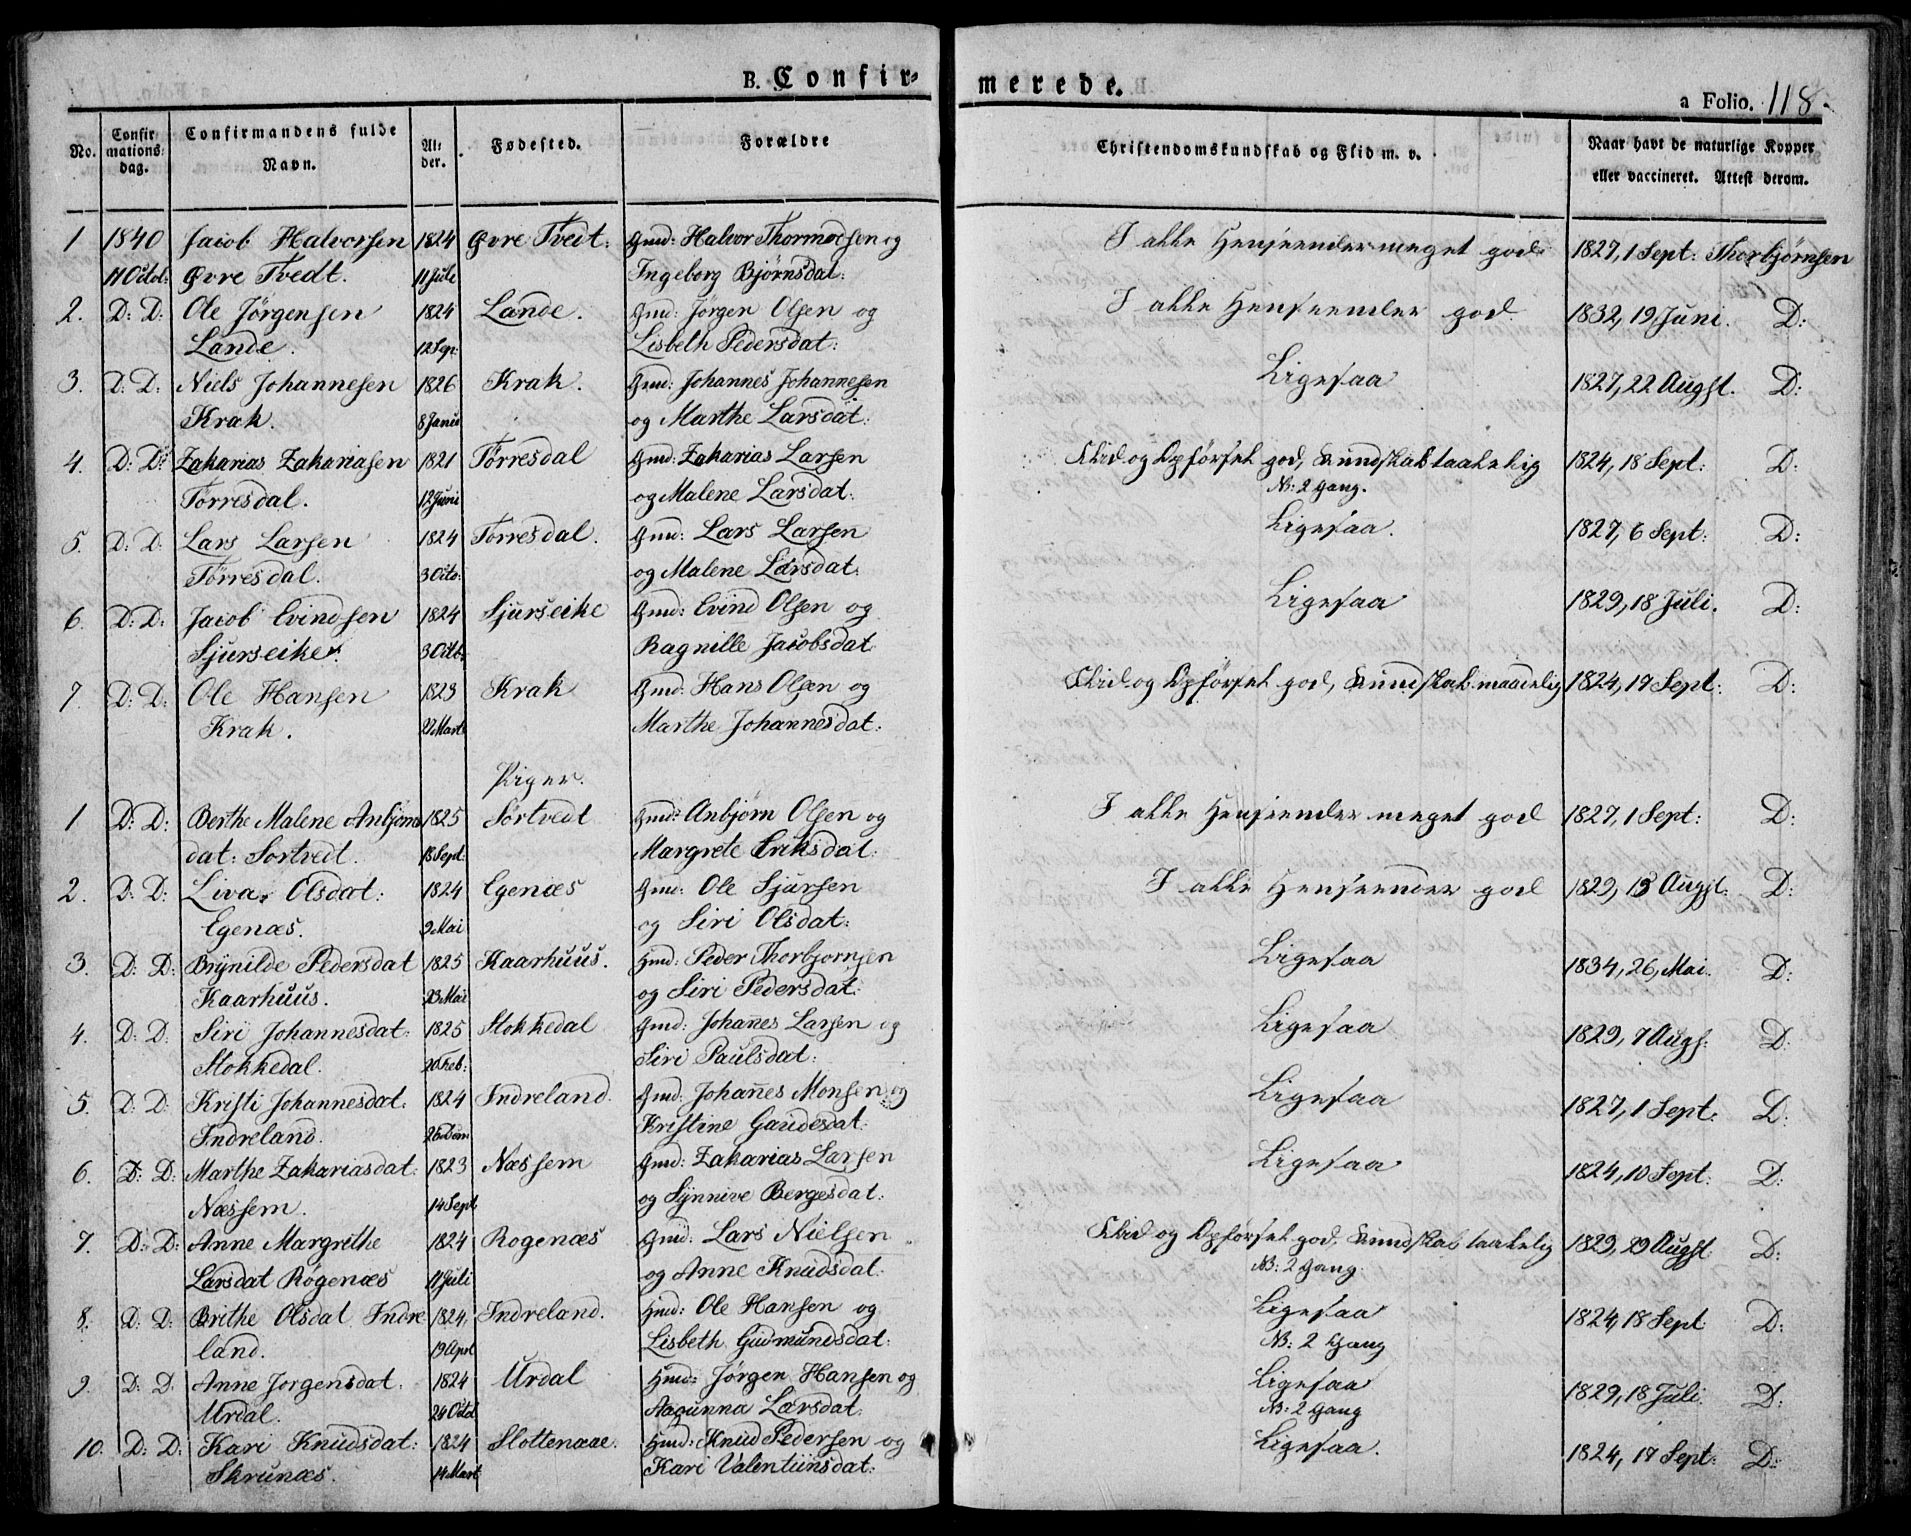 B. Confirmerede.
a Folio. 118.
No. Confirmationsdag. Confirmandens fulde Navn. Alder. Fødested. Forældre Christendomskundskab og Flid m. v. Naar havt de naturlige Kopper eller vaccineret. Attest derom.
1 1840 Jacob Halvorsen 1824 Øvre Tvedt: Gmd: Halvor Thormodsen og I alle Henseender meget god 1827, 1 Sept: Thorbjørnsen
11 Octob: Øvre Tvedt. 11 Juli Ingeborg Bjørnsdat:
2. D: D: Ole Jörgensen 1824 Lande. Gmd: Jörgen Olsen og I alle Henseender god. 1832, 19 Juni. D:
Lande. 12 Sep: Lisbeth Pedersdat:
3. D: D: Niels Johannesen 1826 Krak. Gmd: Johannes Johannesen Ligesaa 1827, 22 Augst. D:
Krak. 8 Janu og Marthe Larsdat:
4. D: D: Zakarias Zakariasen 1821 Tørresdal Gmd: Zakarias Larsen Flid og Opførsel god, Kundskab taalelig 1824, 18 Sept: D:
Torresdal. 12 Juni og Malene Larsdat: NB: 2 Gang.
5. D: D. Lars Larsen 1824 Torresdal. Gmd: Lars Larsen Ligesaa. 1827, 6 Sept: D:
Tørresdal. 3 Octo: og Malene Larsdat:
6. D: D: Jacob Evindsen 1824 Sjurseike Gmd: Evind Olsen og Ligesaa 1829, 18 Juli. D:
Sjurseike. 3 Octb. Ragnille Jacobsdat
7. D: D: Ole Hansen 1823 Krak Gmd: Hans Olsen og Flid og Opførsel god, Kundskab maadelig 1824, 17 Sept: D:
Krak. Marts Marthe Johannesdat:
Piger.
1 D: D: Berthe Malene Anbjøns 1825 Sörtvedt Gmd: Anbjørn Olsen og I alle Henseender meget god 1827, 1 Sept: D:
dat: Sortvedt. 18 Sept: Margrete Eriksdat:
2. D: D: Liva Olsdat: 1824 Egenæs Gmd: Ole Sjursen I alle Henseender god 1829, 13 Augst. D:
Egenæs. 9 Mai og Siri Olsdat:
3. D: D: Brynilde Pedersdat 1825 Kaarhuus. Hmd: Peder Thorbjornsen Ligesaa 1834, 26, Mai. D:
Kaarhuus. 23 Mai og Siri Pedersdat:
4. D: D: Siri Johannesdat: 1825 Stokkedal Gmd: Johan̄es Larsen og Ligesaa 1829, 7 Augs. D:
Stokkedal. 20 Feb: Siri Paulsdat:
5. D: D: Kristi Johannesdat: 1824 Indreland. Gmd: Johan̄es Monsen og Ligesaa 1827, 1 Sept: D:
Indreland. Kristine Gaudesdat:
6. D: D: Marthe Zakariasdat: 1823 Næssem Gmd: Zakarias Larsen Ligesaa 1824, 10 Sept: D:
Næssem. 14 Sept og Synnive Bergesdat:
7. D: D: Anne Margrethe 1824 Rogenæs Gmd: Lars Nielsen Flid og Opførsel god, Kundskab taalelig 1829, 29 Augst. D:
Larsdat Røgenæs 11 Juli og Anne Knudsdat: NB: 2 Gang.
8. D: D: Brithe Olsdat Indre 1824, Indreland. Hmd: Ole Hansen og Ligesaa 1824, 18 Sept D:
land. 19 Apl Lisbeth Gudmundsdat: NB: 2 Gang
9. D: D. Anne Jorgensdat. 1824 Urdal Hmd: Jørgen Hansen og Ligesaa 1829, 18 Juli. D:
Urdal. 24 Octo Aagunna Larsdat. NB: 2 Gang
10. D: D: Kari Knudsdat: 1824 Stottenaae. Hmd: Knud Pedersen og Ligesaa. 1824, 17 Sept: D:
Skrunæs. 14 Mart Kari Valentiinsdat: